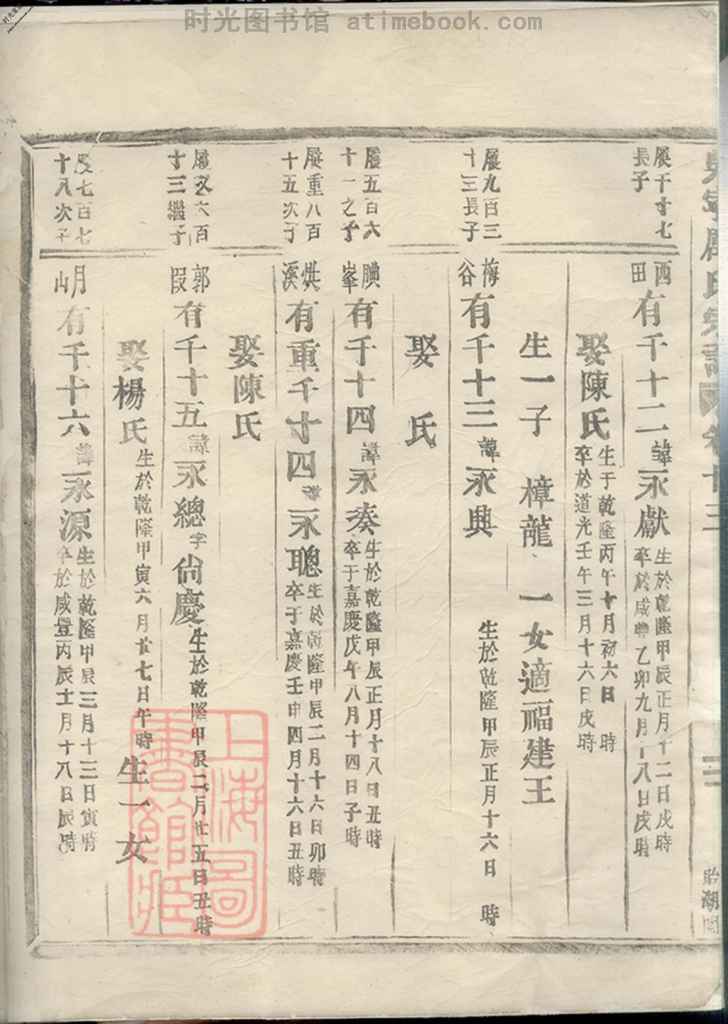 时光图书馆 atimebook.com
氏宗譜 卷十三
三
展千寸七
長子
西田 有千十二 諱 永獻 生於乾隆甲辰正月十二日戌時
卒於咸豐乙卯九月十八日戌時
娶陳氏 生于乾隆丙午十月初六日 時
卒於道光壬午三月十六日戌時
生一子 樟龍 一女適福建王
展九百三
十三長子
梅谷 有千十三 諱 永典 生於乾隆甲辰正月十六日 時
娶 氏
展五百六
十一之子
峯 有千十四 諱 永奏 生於乾隆甲辰正月十八日丑時
卒于嘉慶戊午八月十四日子時
展重八百
十五次子
烘溪 有重千寸四 永聰 生於乾隆甲辰二月十六日卯時
卒于嘉慶壬申四月十六日丑時
娶陳氏
六百
十三繼子
郭 有千十五 諱 永總 字 尙慶 生於乾隆甲辰二月廿五日丑時
娶楊氏 生於乾隆甲寅六月廿七日午時 生一女
七百七
十八次子
月山 有千十六 諱 永源 生於乾隆甲辰三月十三日寅時
卒於咸豐丙辰十月十八日辰時
上海圖
書館藏